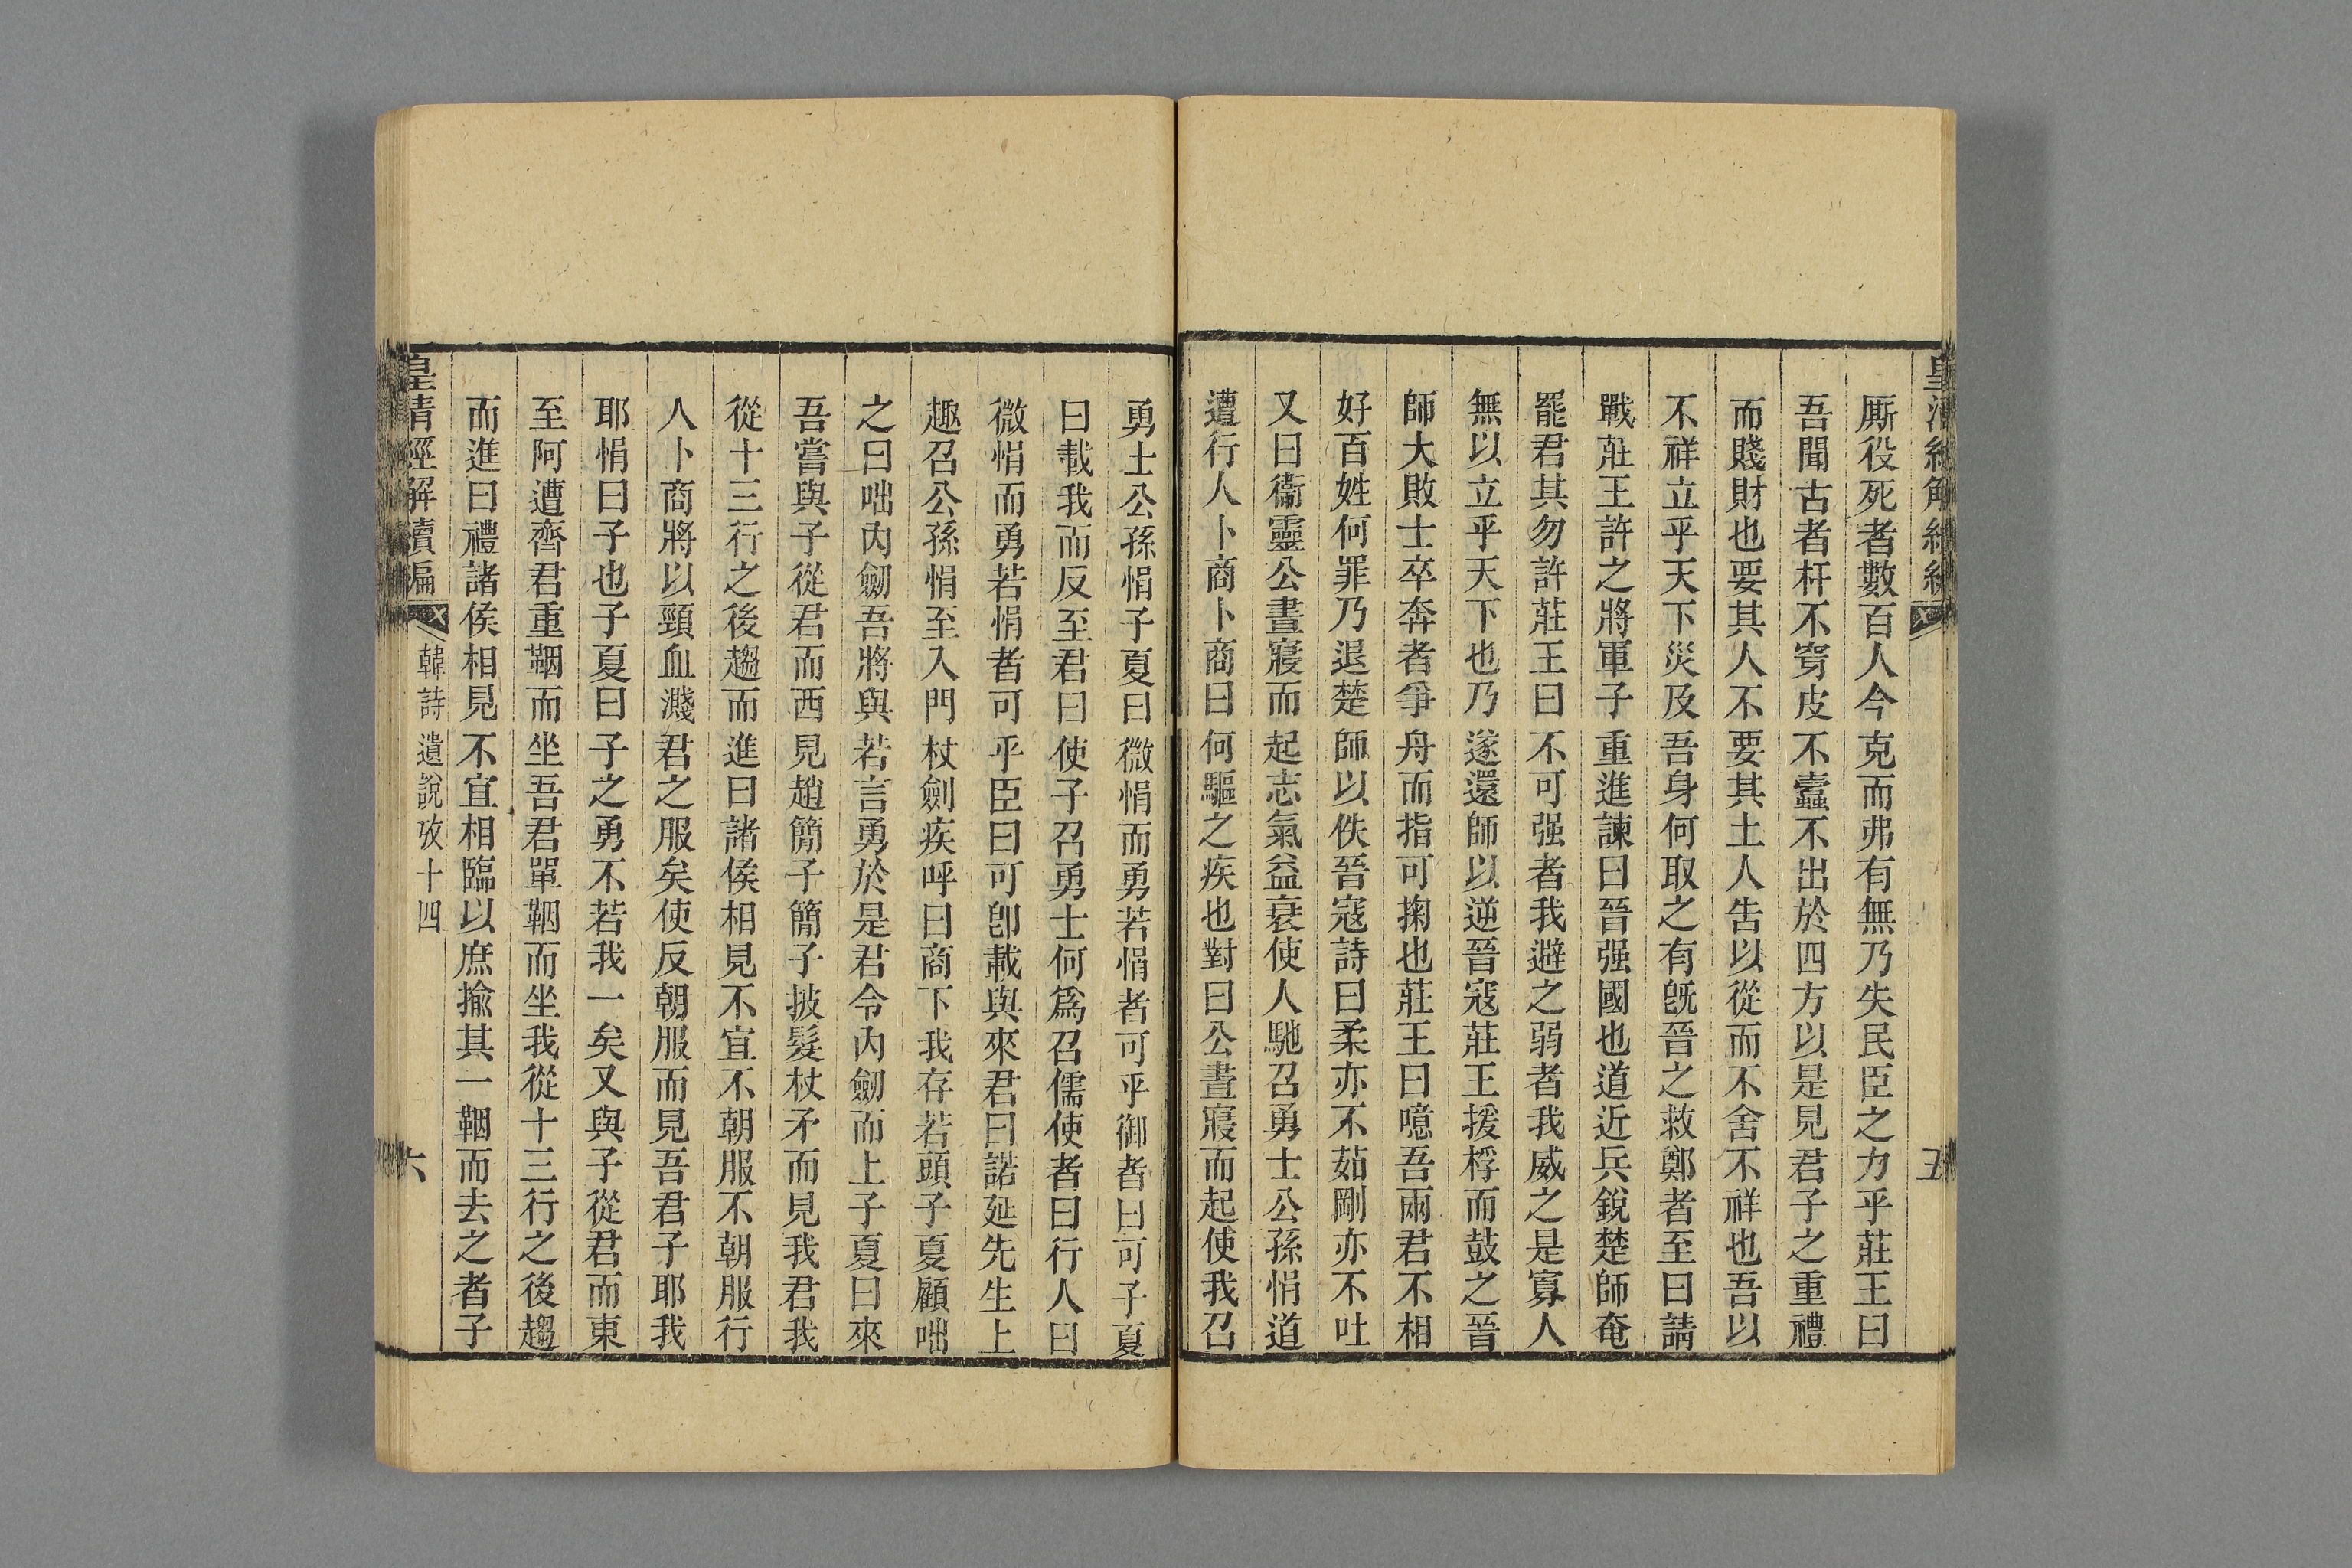 厮役死者數百人今克而弗有無乃失民臣之力乎莊王曰
吾聞古者杅不穿皮不蠹不出於四方以是見君子之重禮
而賤財也要其人不要其土人告以從而不舍不祥也吾以
不祥立乎天下災及吾身何取之有旣晉之救鄭者至曰請
戰莊王許之將軍子重進諫曰晉强國也道近兵銳楚師奄
罷君其勿許莊王曰不可强者我避之弱者我威之是寡人
無以立乎天下也乃遂還師以逆晉寇莊王援桴而鼓之晉
師大敗士卒奔者爭舟而指可掬也莊王曰噫吾兩君不相
好百姓何罪乃退楚師以佚晉寇詩曰柔亦不茹剛亦不吐
又曰衞靈公晝寢而起志氣益衰使人馳召勇士公孫悁道
遭行人卜商卜商曰何驅之疾也對曰公晝寢而起使我召
五
勇士公孫悁子夏曰微悁而勇若悁者可乎御者曰可子夏
曰載我而反至君曰使子召勇士何爲召儒使者曰行人曰
微悁而勇若悁者可乎臣曰可卽載與來君曰諾延先生上
趣召公孫悁至入門杖劍疾呼曰商下我存若頭子夏顧咄
之曰咄內劒吾將與若言勇於是君令內劒而上子夏曰來
吾嘗與子從君而西見趙簡子簡子披髮杖矛而見我君我
從十三行之後趨而進曰諸侯相見不宜不朝服不朝服行
人卜商將以頸血濺君之服矣使反朝服而見吾君子耶我
耶悁曰子也子夏曰子之勇不若我一矣又與子從君而東
至阿遭齊君重鞇而坐吾君單鞇而坐我從十三行之後趨
而進曰禮諸侯相見不宜相臨以庶揄其一鞇而去之者子
皇清經解續編 韓詩遺說攷十四 六